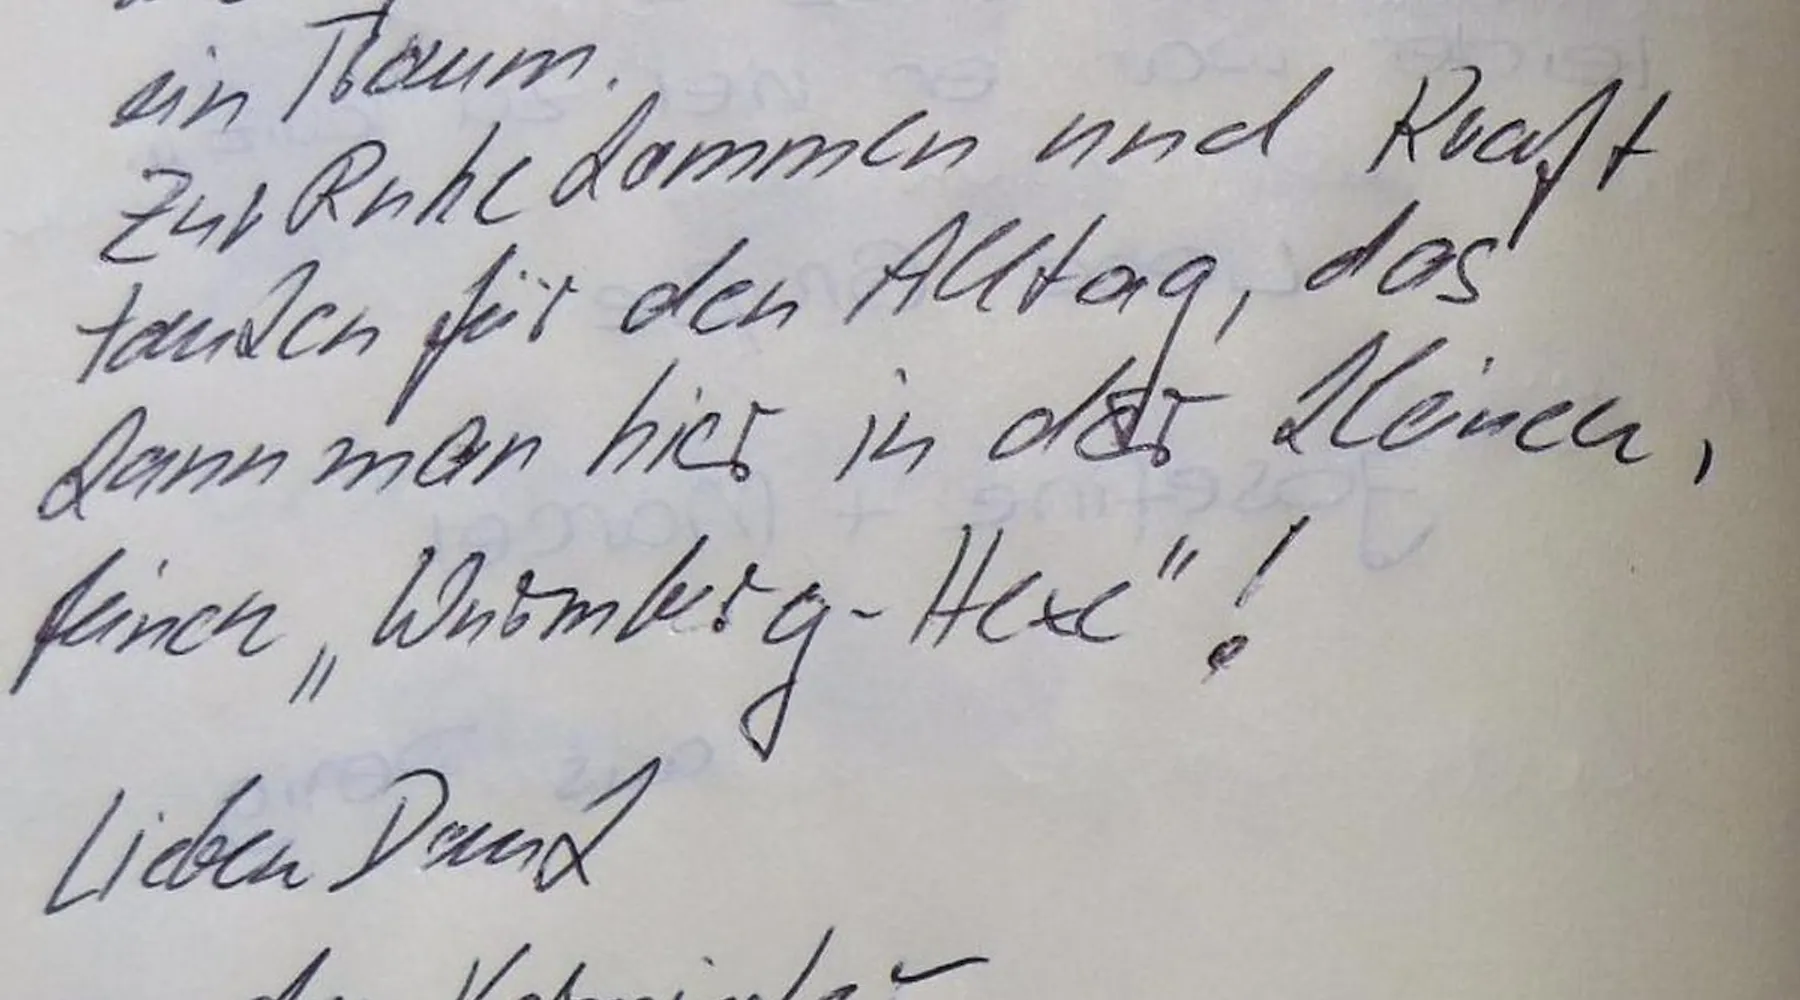 ein Traum.
Zur Ruhe kommen und Kraft
tanken für den Alltag, das
kann man hier in der kleinen,
feinen „Wurmberg-Hexe"!
Lieben Dank